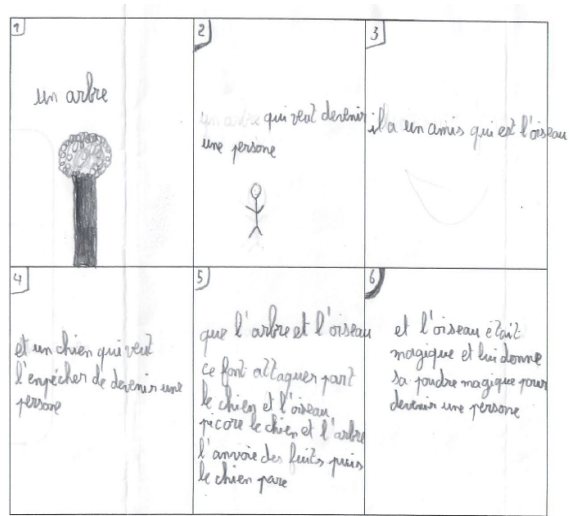 1
un arbre
2
qui veut devenir
une persone
3
il a un amis qui est l'oiseau
4
et un chien qui veut
l'enpêcher de devenir une
persone
5
que l'arbre et l'oiseau
ce font attaquer part
le chien et l'oiseau
picore le chien et l'arbre
l'anvoie des fuits puis
le chien pare
6
et l'oiseau était
magique et lui donne
sa poudre magique pour
devenir une persone